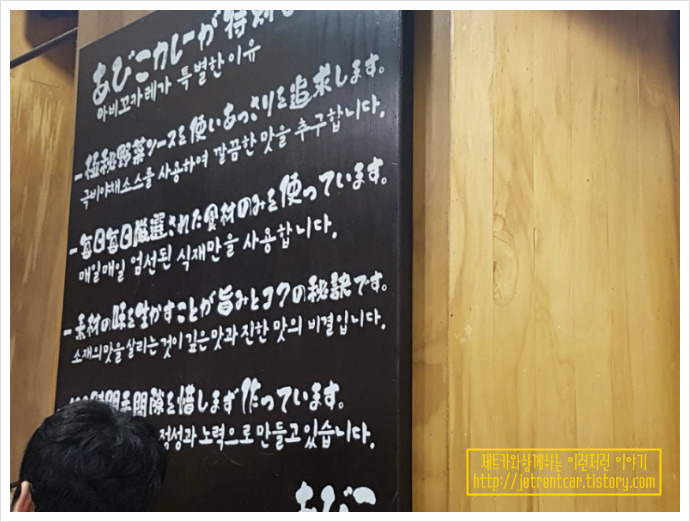 あびこカレーが特別な
아비꼬카레가 특별한 이유
-極秘野菜ソースを使いあっさりを追求します。
극비야채소스를 사용하여 깔끔한 맛을 추구합니다.
-毎日毎日厳選された食材のみを使っています。
매일매일 엄선된 식재만을 사용합니다.
-素材の味を生かすことが旨みとコクの秘訣です。
소재의맛을살리는것이 깊은맛과 진한 맛의 비결입니다.
時間手間隙を惜しまず作っています。
정성과 노력으로 만들고있습니다.
あびこ
제트카와함께하는 이런저런 이야기
http://jetrentcar.tistory.com